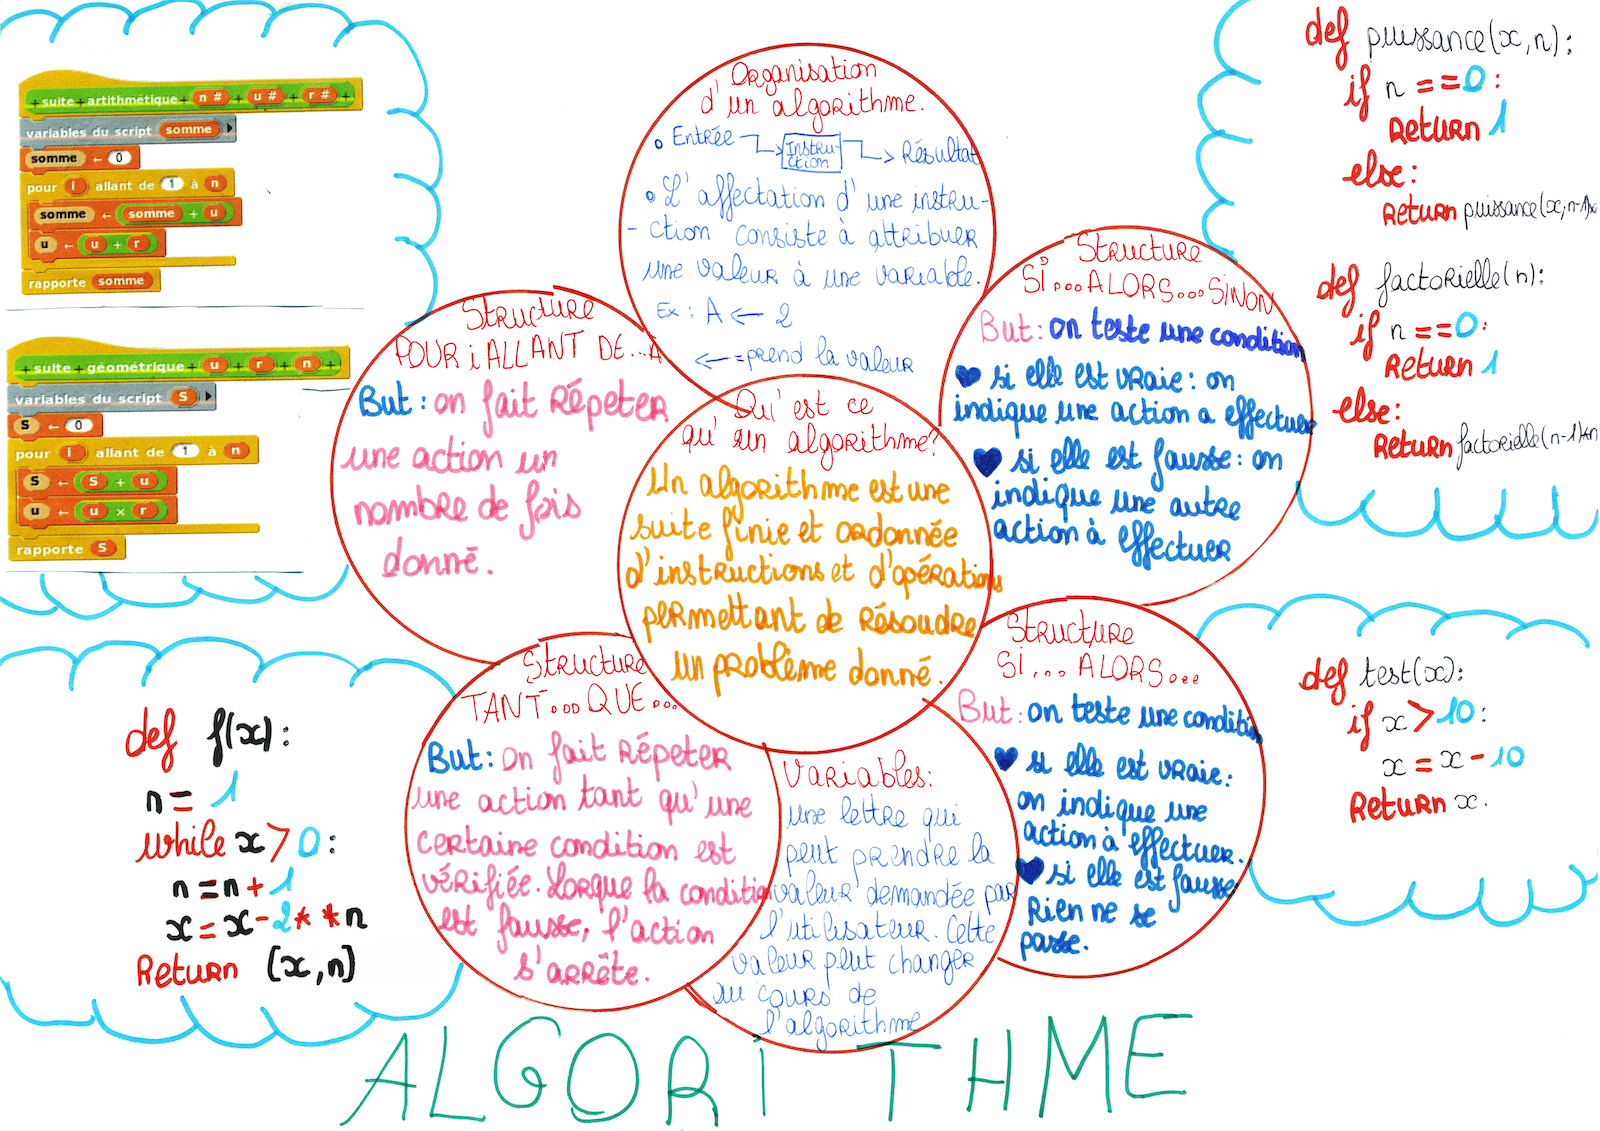 + suite + artithmétique + n # + u # + r # +
variables du script somme
somme ← 0
pour i allant de 1 à n
somme ← somme + u
u ← u + r
rapporte somme
+ suite + géometrique + u + r + n +
variables du script S
S ← 0
pour i allant de 1 à n
S ← S + u
u ← u × r
rapporte S
Organisation
d'un algorithme.
Entrée → Instru-
ction → Résultat
L'affectation d'une instru-
- ction consiste à attribuer
une valeur à une variable.
Ex : A ← 2
← = prend la valeur
Structure
POUR i ALLANT DE...A
But : on fait Répeter
une action un
nombre de fois
donné.
Structure
SI...ALORS...SINON
But : on teste une condition
si elle est vraie : on
indique une action a effectuer
si elle est fausse : on
indique une autre
action à effectuer
def puissance(x,n):
if n ==0:
Return 1
else:
Return puissance(x,n-1)x
def factorielle(n):
if n ==0:
Return 1
else:
Return factorielle(n-1)*n
Qu'est ce
qu'un algorithme?
Un algorithme est une
suite finie et ordonnée
d'instructions et d'opérations
permettant de Résoudre
un problème donné.
Structure
TANT...QUE...
But : On fait Répeter
une action tant qu'une
certaine condition est
vérifiée. Lorque la condition
est fausse, l'action
s'arrête.
Variables:
une lettre qui
peut prendre la
valeur demandée par
l'utilisateur. Cette
valeur peut changer
au cours de
l'algorithme
Structure
SI... ALORS...
But : on teste une condition
si elle est vraie :
on indique une
action à effectuer.
si elle est fausse
Rien ne se
passe.
def f(x):
n = 1
while x > 0:
n = n + 1
x = x - 2**n
Return (x,n)
def test(x):
if x > 10:
x = x - 10
Return x.
ALGORITHME